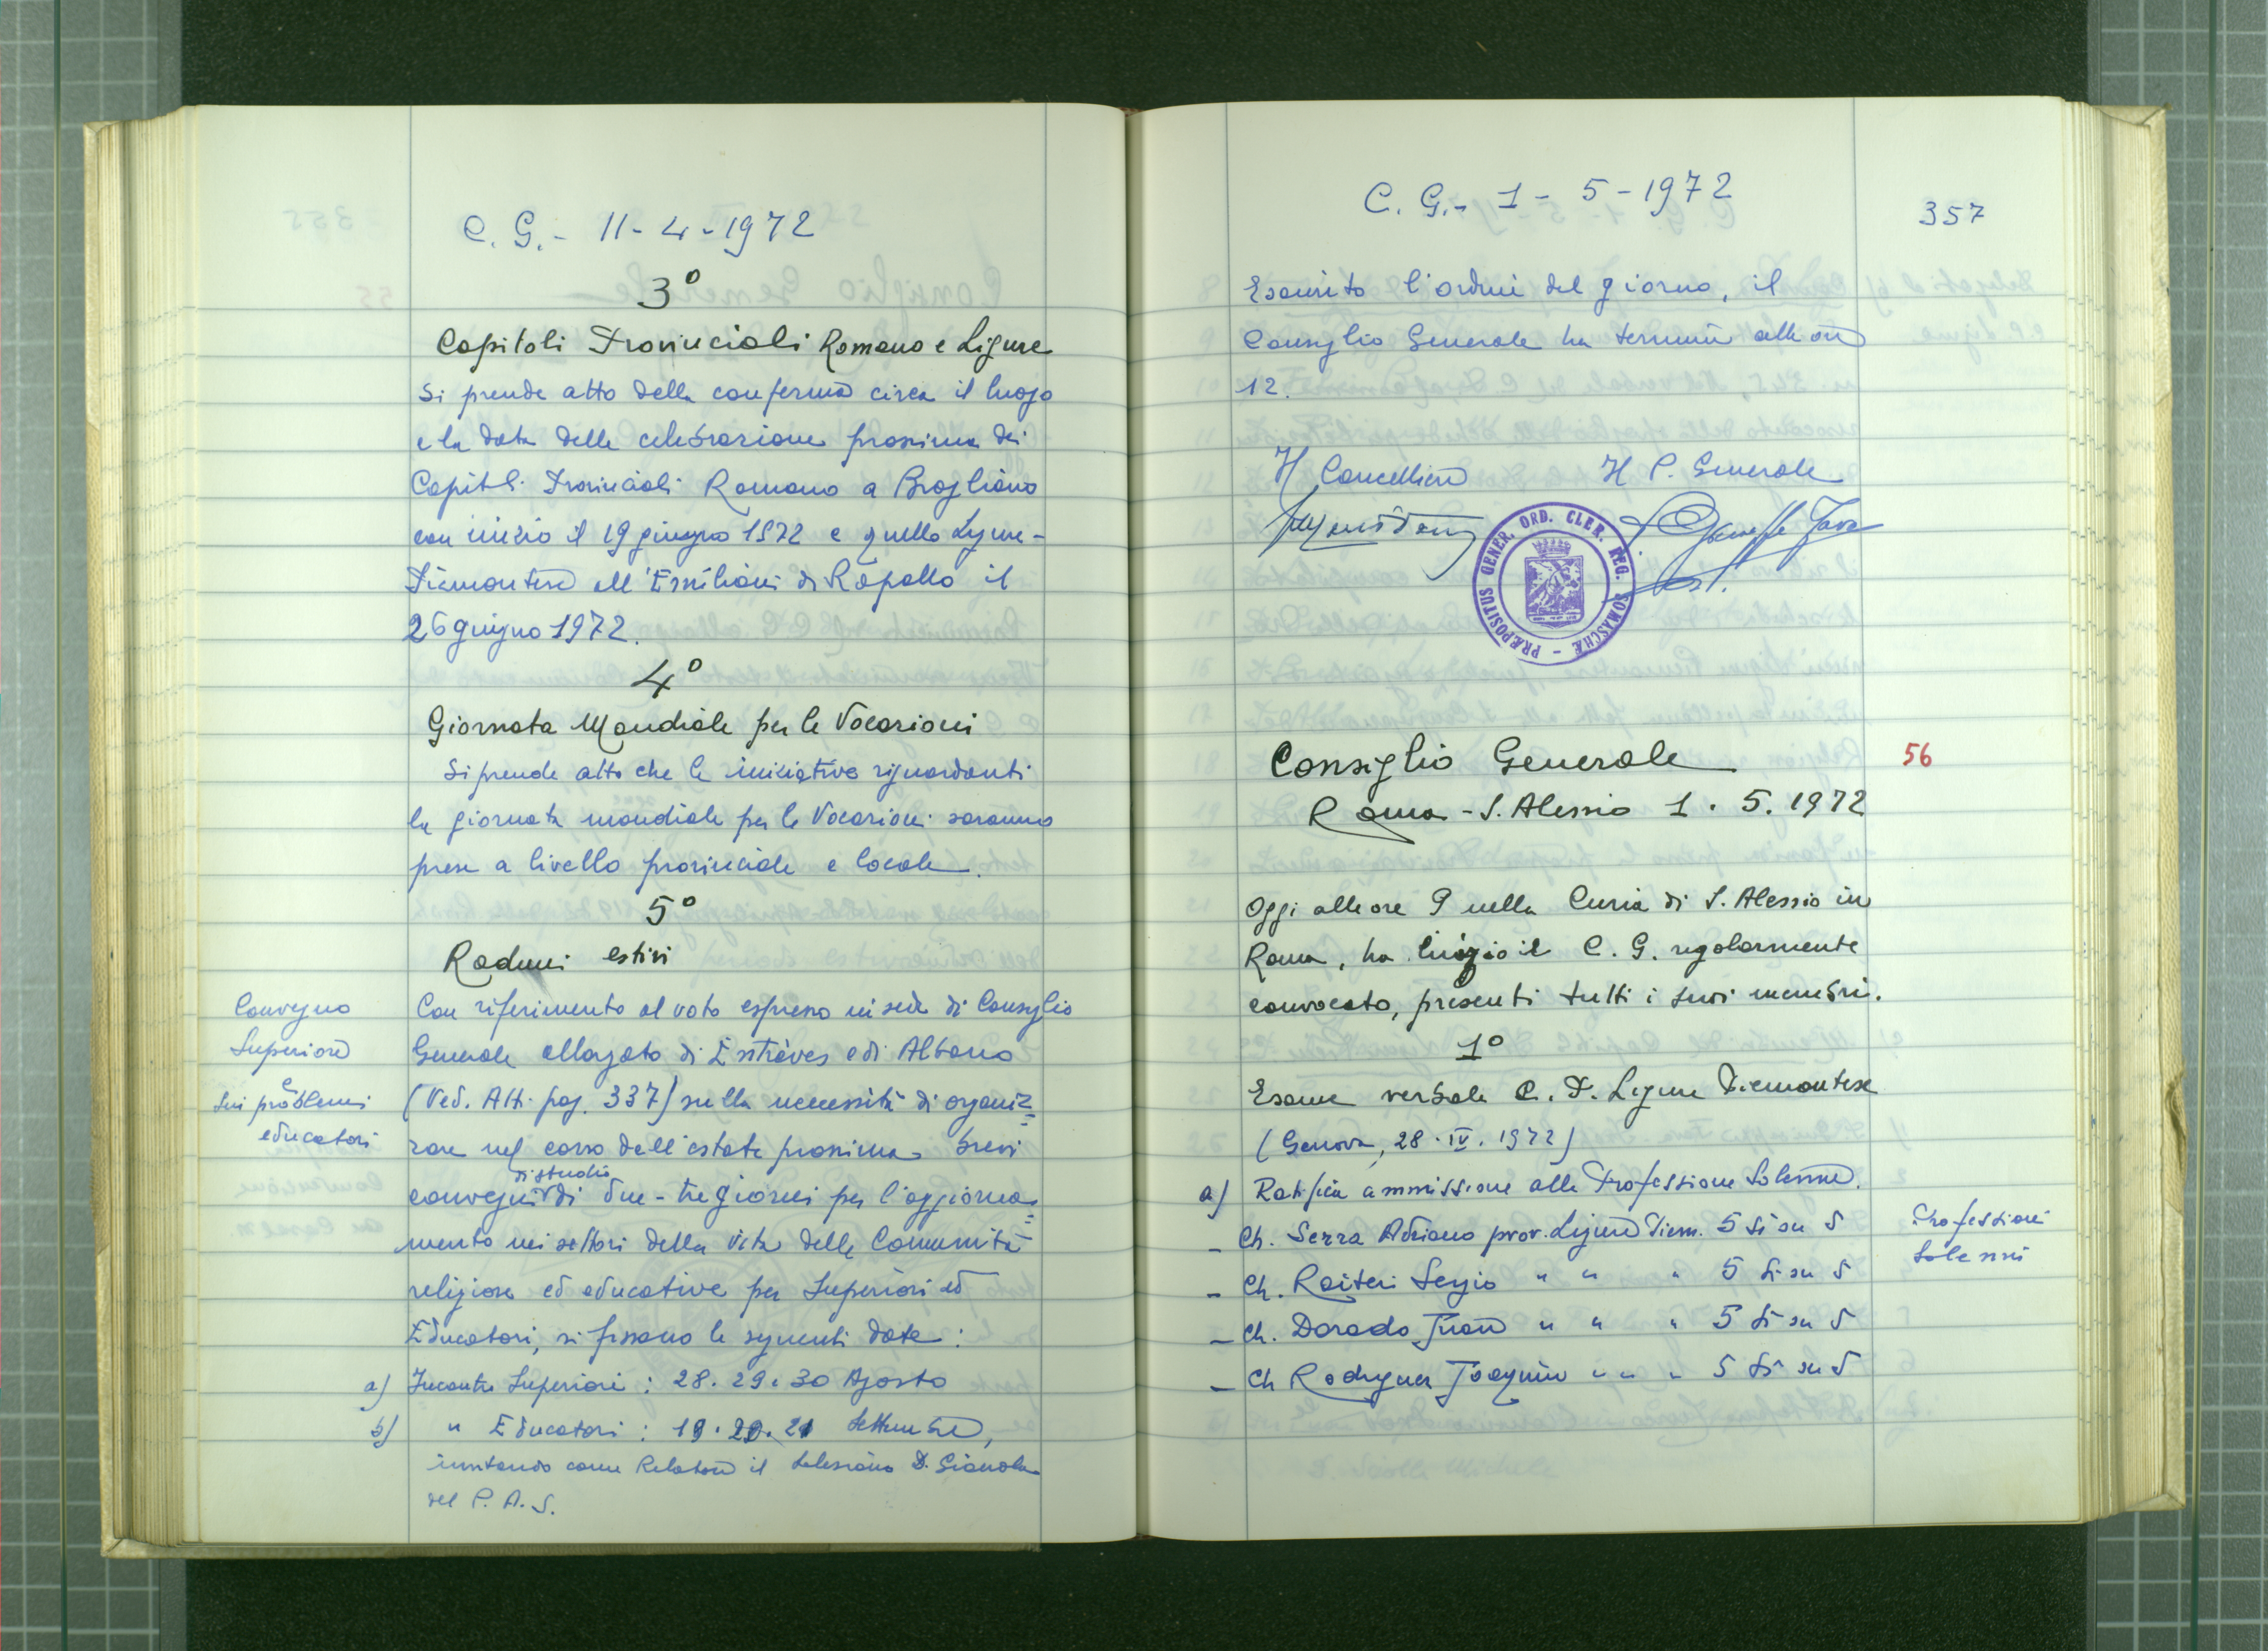 C. G. - 11 - 4 - 1972
3°
Capitoli Provinciali Romano e Ligure
Si prende atto della conferma circa il luogo
e la data della celebrazione prossima dei
Capitoli Provinciali Romano a Brogliano
con inizio il 19 giugno 1972 e quello Ligure-
Piemontese all'Emiliani di Rapallo il
26 giugno 1972.
4°
Giornata Mondiale per le Vocazioni
Si prende atto che le iniziative riguardanti
la giornata mondiale per le Vocazioni saranno
prese a livello provinciale e locale.
5°
Raduni estivi
Convegno
Superiori
e
sui problemi
educatori
Con riferimento al voto espresso in sede di Consiglio
Generale allargato di Entrèves e di Albano
(Ved. Atti pag. 337) sulla necessità di organiz=
zare nel corso dell'estate prossima brevi
convegni di studio di due-tre giorni per l'aggiorna=
mento nei settori della vita delle Comunità
religiose ed educative per Superiori ed
Educatori, si fissano le seguenti date:
a) Incontro Superiori: 28. 29. 30 Agosto
b) " Educatori: 19. 20. 21 Settembre,
invitando come Relatore il Salesiano D. Gianola
del P. A. S.
C. G. - 1 - 5 - 1972
357
Esaurito l'ordine del giorno, il
Consiglio Generale ha termine alle ore
12.
Il Cancelliere Il P. Generale
PRÆPOSITUS GENER. ORD. CLER. REG. SOMASCHÆ
Consiglio Generale
56
Roma - S. Alessio 1. 5. 1972
Oggi alle ore 9 nella Curia di S. Alessio in
Roma, ha inizio il C. G. regolarmente
convocato, presenti tutti i suoi membri.
1°
Esame verbale C. P. Ligure Piemontese
(Genova, 28. IV. 1972)
a) Ratifica ammissione alla Professione Solenne.
Professioni
Solenni
- Ch. Serra Adriano prov. Ligure Piem. 5 sì su 5
- Ch. Raiteri Sergio " " " 5 sì su 5
- Ch. Dorado Juan " " " 5 sì su 5
- Ch Rodriguez Joaquin " " " 5 sì su 5